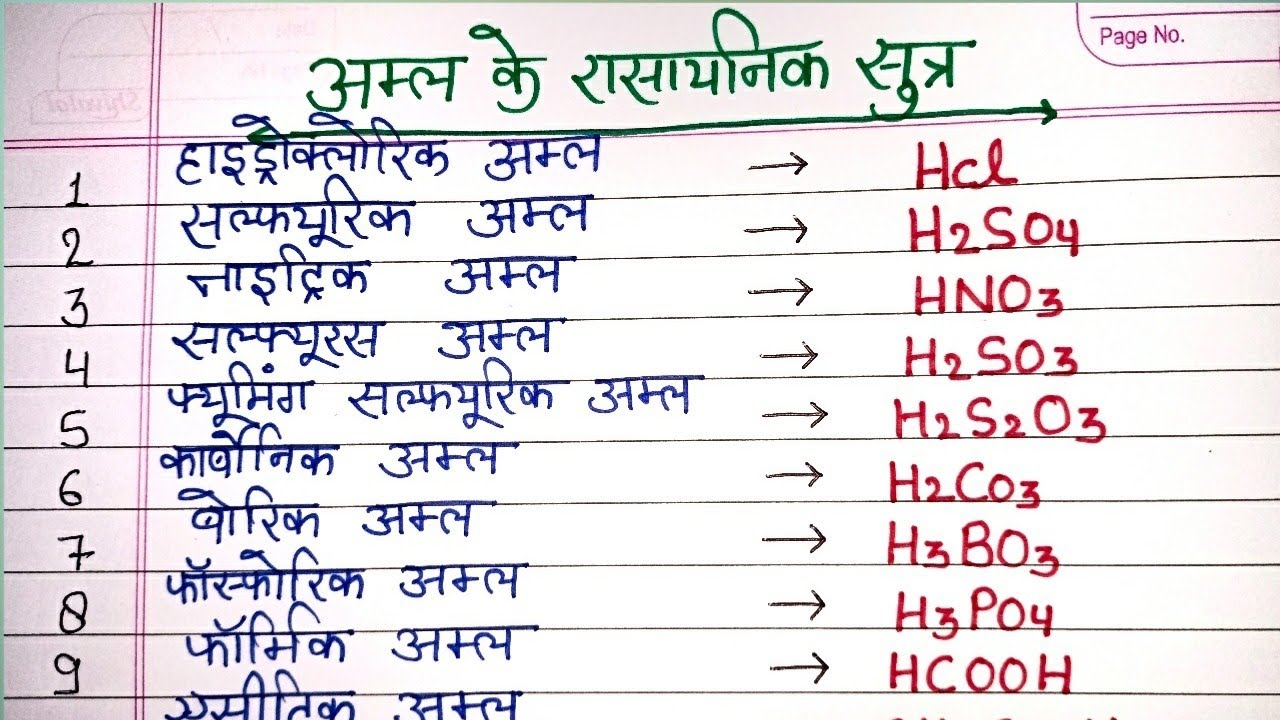 Page No.
अम्ल के रासायनिक सुत्र
1 हाइड्रोक्लोरिक अम्ल → HCl
2 सल्फयूरिक अम्ल → H2SO4
3 नाइट्रिक अम्ल → HNO3
4 सल्फ्यूरस अम्ल → H2SO3
5 फ्यूमिंग सल्फयूरिक अम्ल → H2S2O3
6 कार्बोनिक अम्ल → H2CO3
7 बोरिक अम्ल → H3BO3
8 फॉस्फोरिक अम्ल → H3PO4
9 फॉर्मिक अम्ल → HCOOH
एसीटिक अम्ल